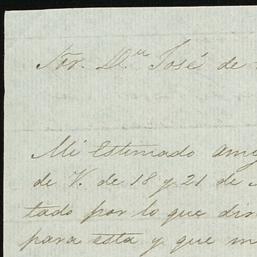 Sor. Dn. José de
Mi Estimado amig
de V. de 18 y 21 de
tado por lo que dis
para esta y que m